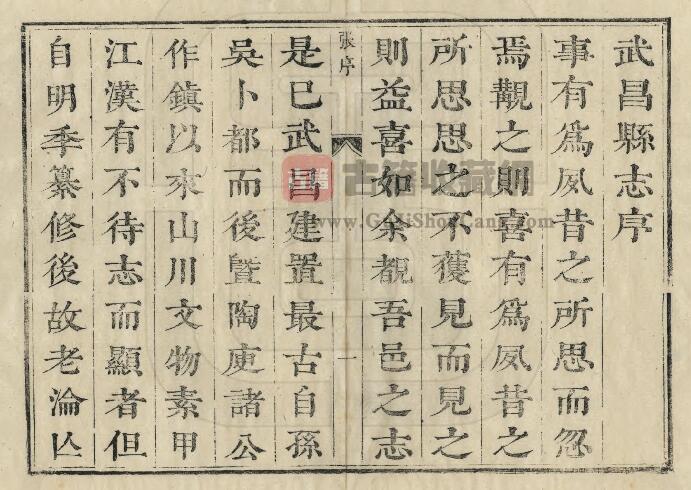 武昌縣志序
事有爲夙昔之所思而忽
焉觀之則喜有爲夙昔之
所思思之不獲見而見之
則益喜如余覩吾邑之志
張序
一
是巳武昌建置最古自孫
吳卜都而後曁陶庾諸公
作鎭以來山川文物素甲
江漢有不待志而顯者但
自明季纂修後故老淪亾
古籍
古籍收藏網
www.GuJiShouCang.com